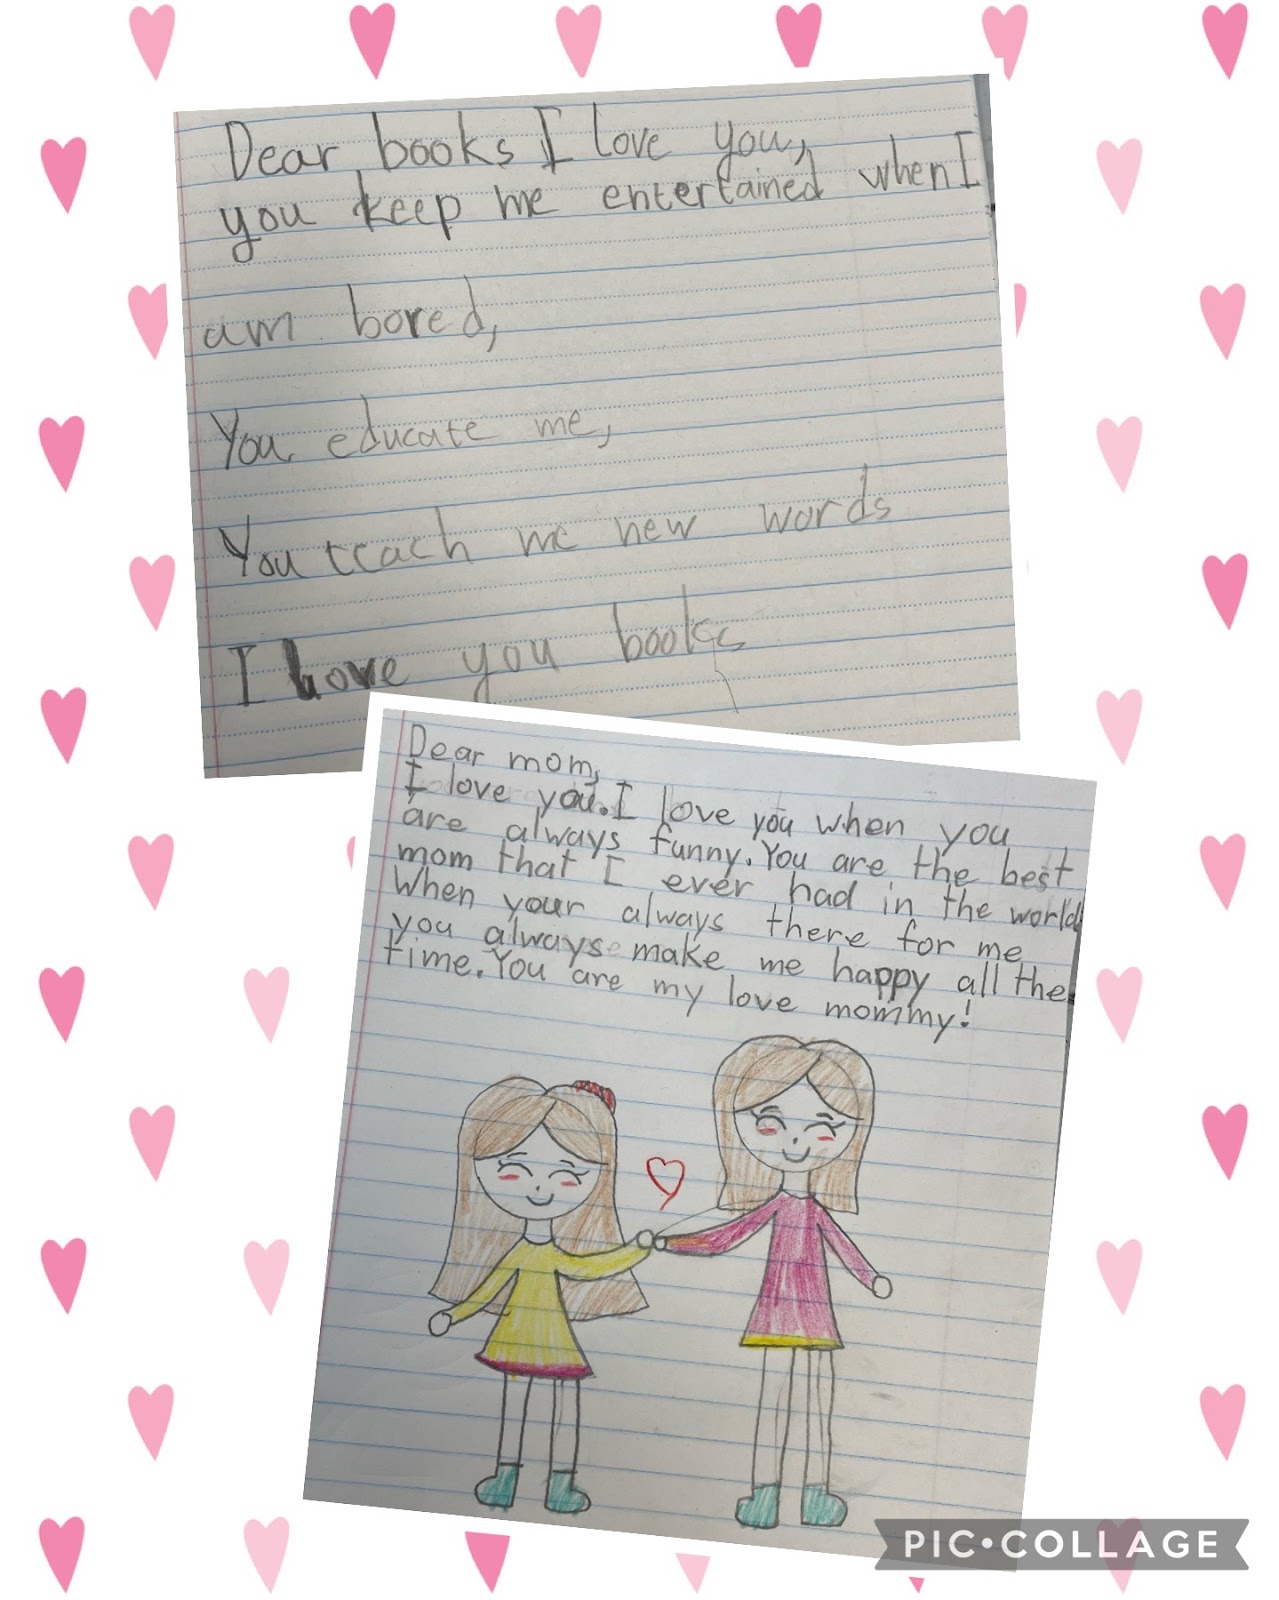 Dear books I love you,
you keep me entertained when I
am bored,
You educate me,
You teach me new words
I love you books
Dear mom,
I love you. I love you when you
are always funny. You are the best
mom that I ever had in the world
When your always there for me
you always make me happy all the
time. You are my love mommy!
PIC•COLLAGE